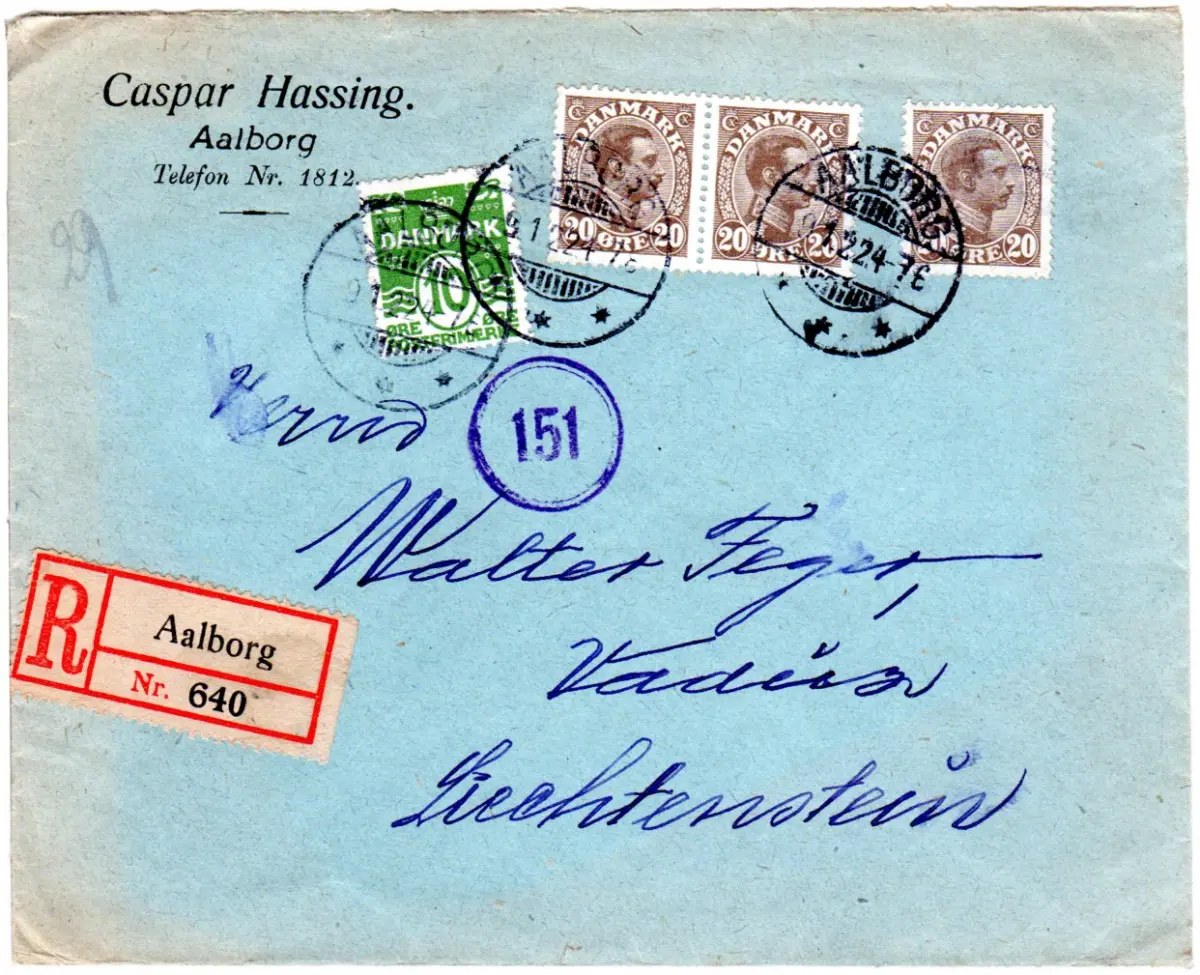 Caspar Hassing.
Aalborg
Telefon Nr. 1812.
29
DANMARK
20 ØRE 20
DANMARK
20 ØRE 20
DANMARK
20 ØRE 20
DANMARK
10
ØRE ØRE
AALBORG
AALBORG
AALBORG
151
Herrn
Walter Feger,
Vadŭz
Liechtenstein
R
Aalborg
Nr. 640